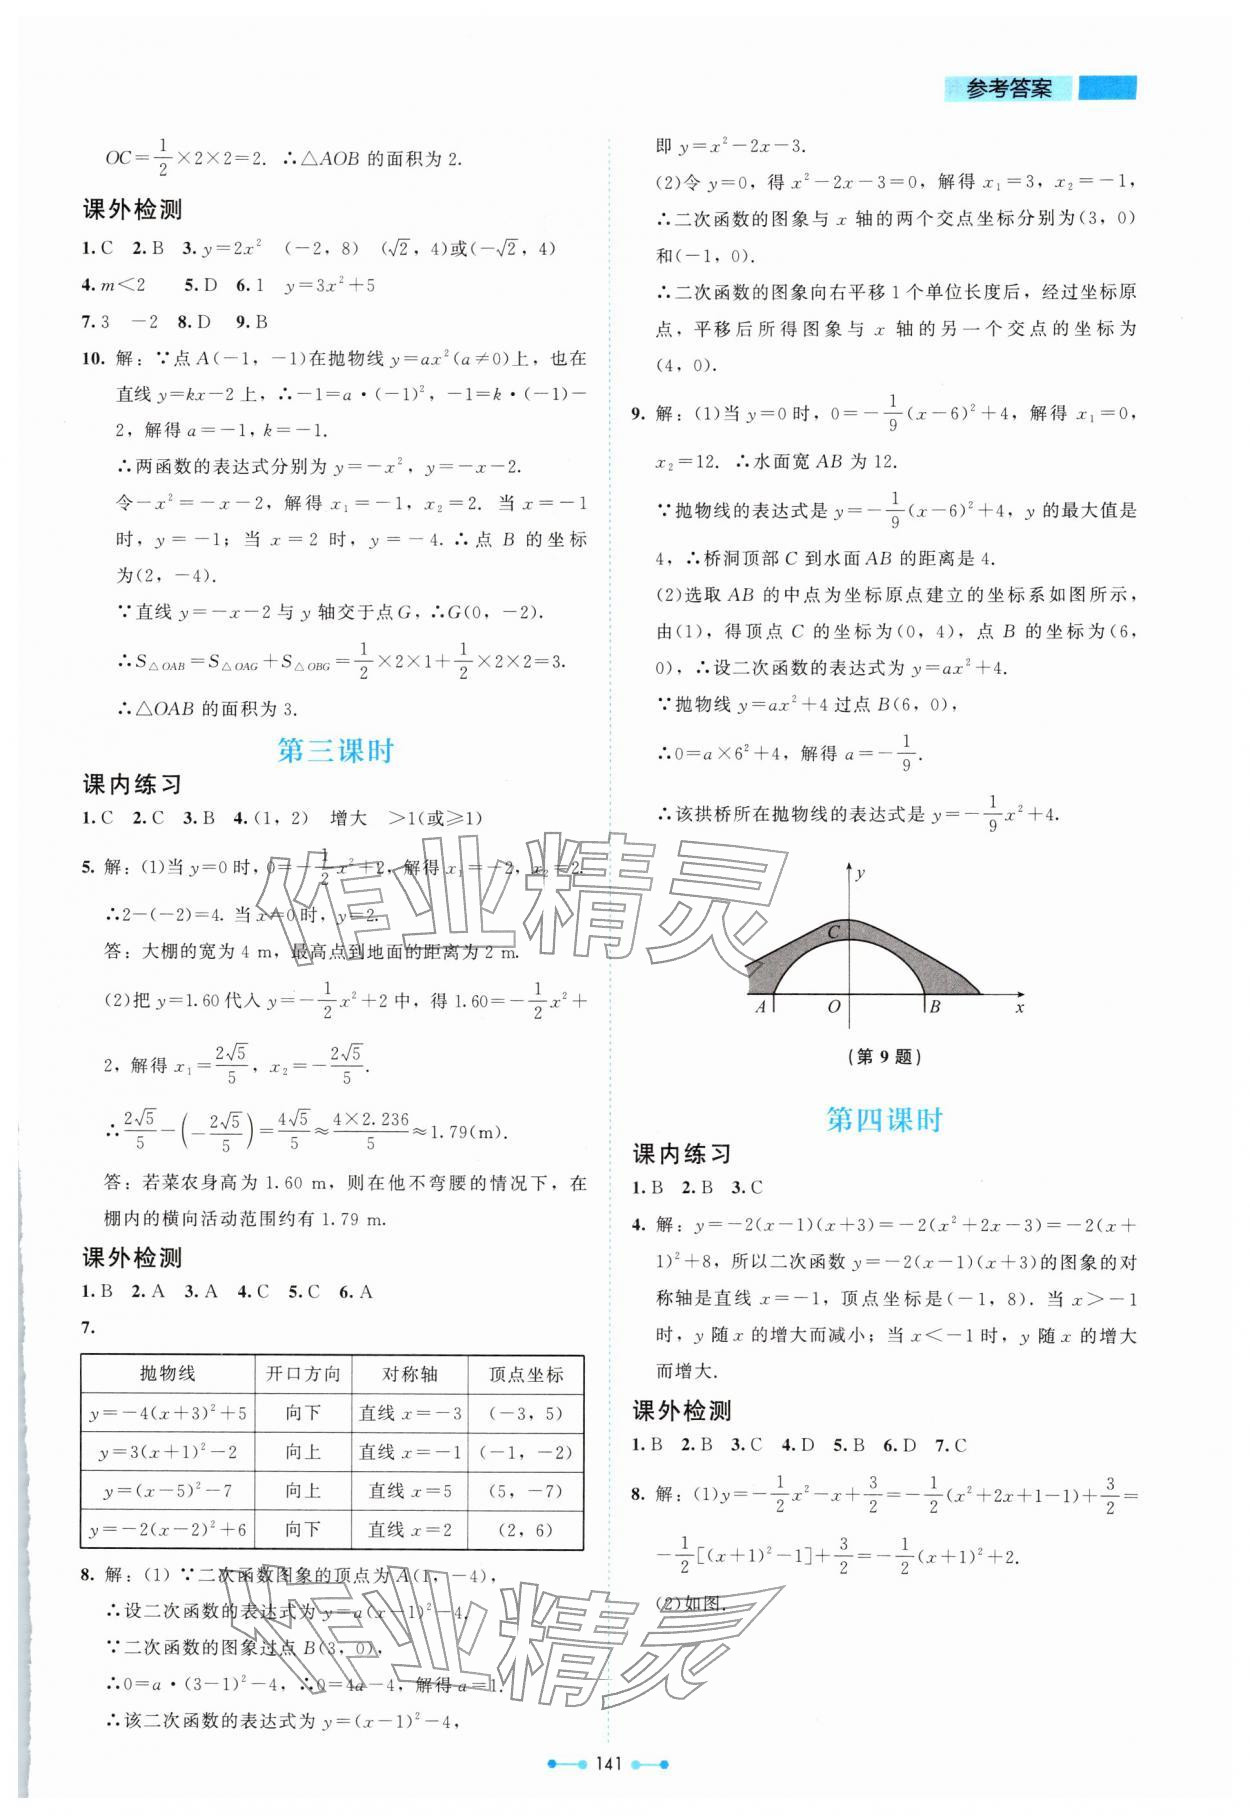 参考答案
OC=1/2×2×2=2. ∴△AOB 的面积为 2.
课外检测
1. C 2. B 3. y=2x² (-2, 8) (√2, 4)或(-√2, 4)
4. m<2 5. D 6. 1 y=3x²+5
7. 3 -2 8. D 9. B
10. 解:∵点 A(-1, -1)在抛物线 y=ax²(a≠0)上, 也在
直线 y=kx-2 上, ∴-1=a·(-1)², -1=k·(-1)-
2, 解得 a=-1, k=-1.
∴两函数的表达式分别为 y=-x², y=-x-2.
令-x²=-x-2, 解得 x₁=-1, x₂=2. 当 x=-1
时, y=-1; 当 x=2 时, y=-4. ∴点 B 的坐标
为(2, -4).
∵直线 y=-x-2 与 y 轴交于点 G, ∴G(0, -2).
∴S△OAB=S△OAG+S△OBG=1/2×2×1+1/2×2×2=3.
∴△OAB 的面积为 3.
第三课时
课内练习
1. C 2. C 3. B 4. (1, 2) 增大 >1(或≥1)
5. 解:(1)当 y=0 时, 0=-1/2x²+2, 解得 x₁=-2, x₂=2.
∴2-(-2)=4. 当 x=0 时, y=2.
答: 大棚的宽为 4 m, 最高点到地面的距离为 2 m.
(2)把 y=1.60 代入 y=-1/2x²+2 中, 得 1.60=-1/2x²+
2, 解得 x₁=2√5/5, x₂=-2√5/5.
∴2√5/5-(-2√5/5)=4√5/5≈4×2.236/5≈1.79(m).
答: 若菜农身高为 1.60 m, 则在他不弯腰的情况下, 在
棚内的横向活动范围约有 1.79 m.
课外检测
1. B 2. A 3. A 4. C 5. C 6. A
7.
抛物线 开口方向 对称轴 顶点坐标
y=-4(x+3)²+5 向下 直线 x=-3 (-3, 5)
y=3(x+1)²-2 向上 直线 x=-1 (-1, -2)
y=(x-5)²-7 向上 直线 x=5 (5, -7)
y=-2(x-2)²+6 向下 直线 x=2 (2, 6)
8. 解:(1) ∵二次函数图象的顶点为 A(1, -4),
∴设二次函数的表达式为 y=a(x-1)²-4.
∵二次函数的图象过点 B(3, 0),
∴0=a·(3-1)²-4, ∴0=4a-4, 解得 a=1.
∴该二次函数的表达式为 y=(x-1)²-4,
即 y=x²-2x-3.
(2)令 y=0, 得 x²-2x-3=0, 解得 x₁=3, x₂=-1,
∴二次函数的图象与 x 轴的两个交点坐标分别为(3, 0)
和(-1, 0).
∴二次函数的图象向右平移 1 个单位长度后, 经过坐标原
点, 平移后所得图象与 x 轴的另一个交点的坐标为
(4, 0).
9. 解:(1)当 y=0 时, 0=-1/9(x-6)²+4, 解得 x₁=0,
x₂=12. ∴水面宽 AB 为 12.
∵抛物线的表达式是 y=-1/9(x-6)²+4, y 的最大值是
4, ∴桥洞顶部 C 到水面 AB 的距离是 4.
(2)选取 AB 的中点为坐标原点建立的坐标系如图所示,
由(1), 得顶点 C 的坐标为(0, 4), 点 B 的坐标为(6,
0), ∴设二次函数的表达式为 y=ax²+4.
∵抛物线 y=ax²+4 过点 B(6, 0),
∴0=a×6²+4, 解得 a=-1/9.
∴该拱桥所在抛物线的表达式是 y=-1/9x²+4.
y
C
A O B x
(第 9 题)
第四课时
课内练习
1. B 2. B 3. C
4. 解: y=-2(x-1)(x+3)=-2(x²+2x-3)=-2(x+
1)²+8, 所以二次函数 y=-2(x-1)(x+3)的图象的对
称轴是直线 x=-1, 顶点坐标是(-1, 8). 当 x>-1
时, y 随 x 的增大而减小; 当 x<-1 时, y 随 x 的增大
而增大.
课外检测
1. B 2. B 3. C 4. D 5. B 6. D 7. C
8. 解:(1)y=-1/2x²-x+3/2=-1/2(x²+2x+1-1)+3/2=
-1/2[(x+1)²-1]+3/2=-1/2(x+1)²+2.
(2)如图.
141
作业精灵
作业精灵